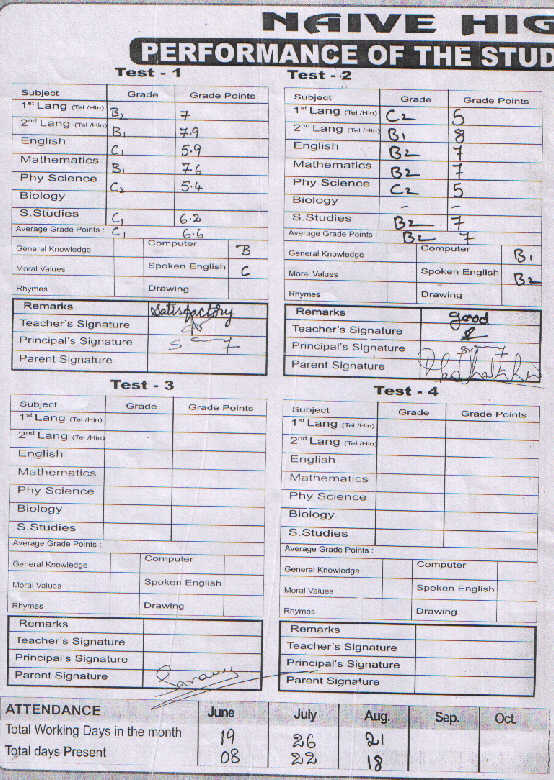 NAIVE HIG
PERFORMANCE OF THE STUD
Test - 1
Subject Grade Grade Points
1st Lang (Tel /Hin) B2 7
2nd Lang (Tel /Hin) B1 7.9
English C1 5.9
Mathematics B1 7.6
Phy Science C2 5.4
Biology
S.Studies C1 6.2
Average Grade Points : C1 6.6
General Knowledge Computer B
Moral Values Spoken English C
Rhymes Drawing
Remarks Satisfactory
Teacher's Signature
Principal's Signature
Parent Signature
Test - 2
Subject Grade Grade Points
1st Lang (Tel /Hin) C2 5
2nd Lang (Tel /Hin) B1 8
English B2 7
Mathematics B2 7
Phy Science C2 5
Biology - -
S.Studies B2 7
Average Grade Points B2 7
General Knowledge Computer B1
Moral Values Spoken English B2
Rhymes Drawing
Remarks good
Teacher's Signature
Principal's Signature
Parent Signature
Test - 3
Subject Grade Grade Points
1st Lang (Tel /Hin)
2nd Lang (Tel /Hin)
English
Mathematics
Phy Science
Biology
S.Studies
Average Grade Points :
General Knowledge Computer
Moral Values Spoken English
Rhymes Drawing
Remarks
Teacher's Signature
Principal's Signature
Parent Signature
Test - 4
Subject Grade Grade Points
1st Lang (Tel /Hin)
2nd Lang (Tel /Hin)
English
Mathematics
Phy Science
Biology
S.Studies
Average Grade Points :
General Knowledge Computer
Moral Values Spoken English
Rhymes Drawing
Remarks
Teacher's Signature
Principal's Signature
Parent Signature
ATTENDANCE June July Aug. Sep. Oct.
Total Working Days in the month 19 26 21
Total days Present 08 22 18